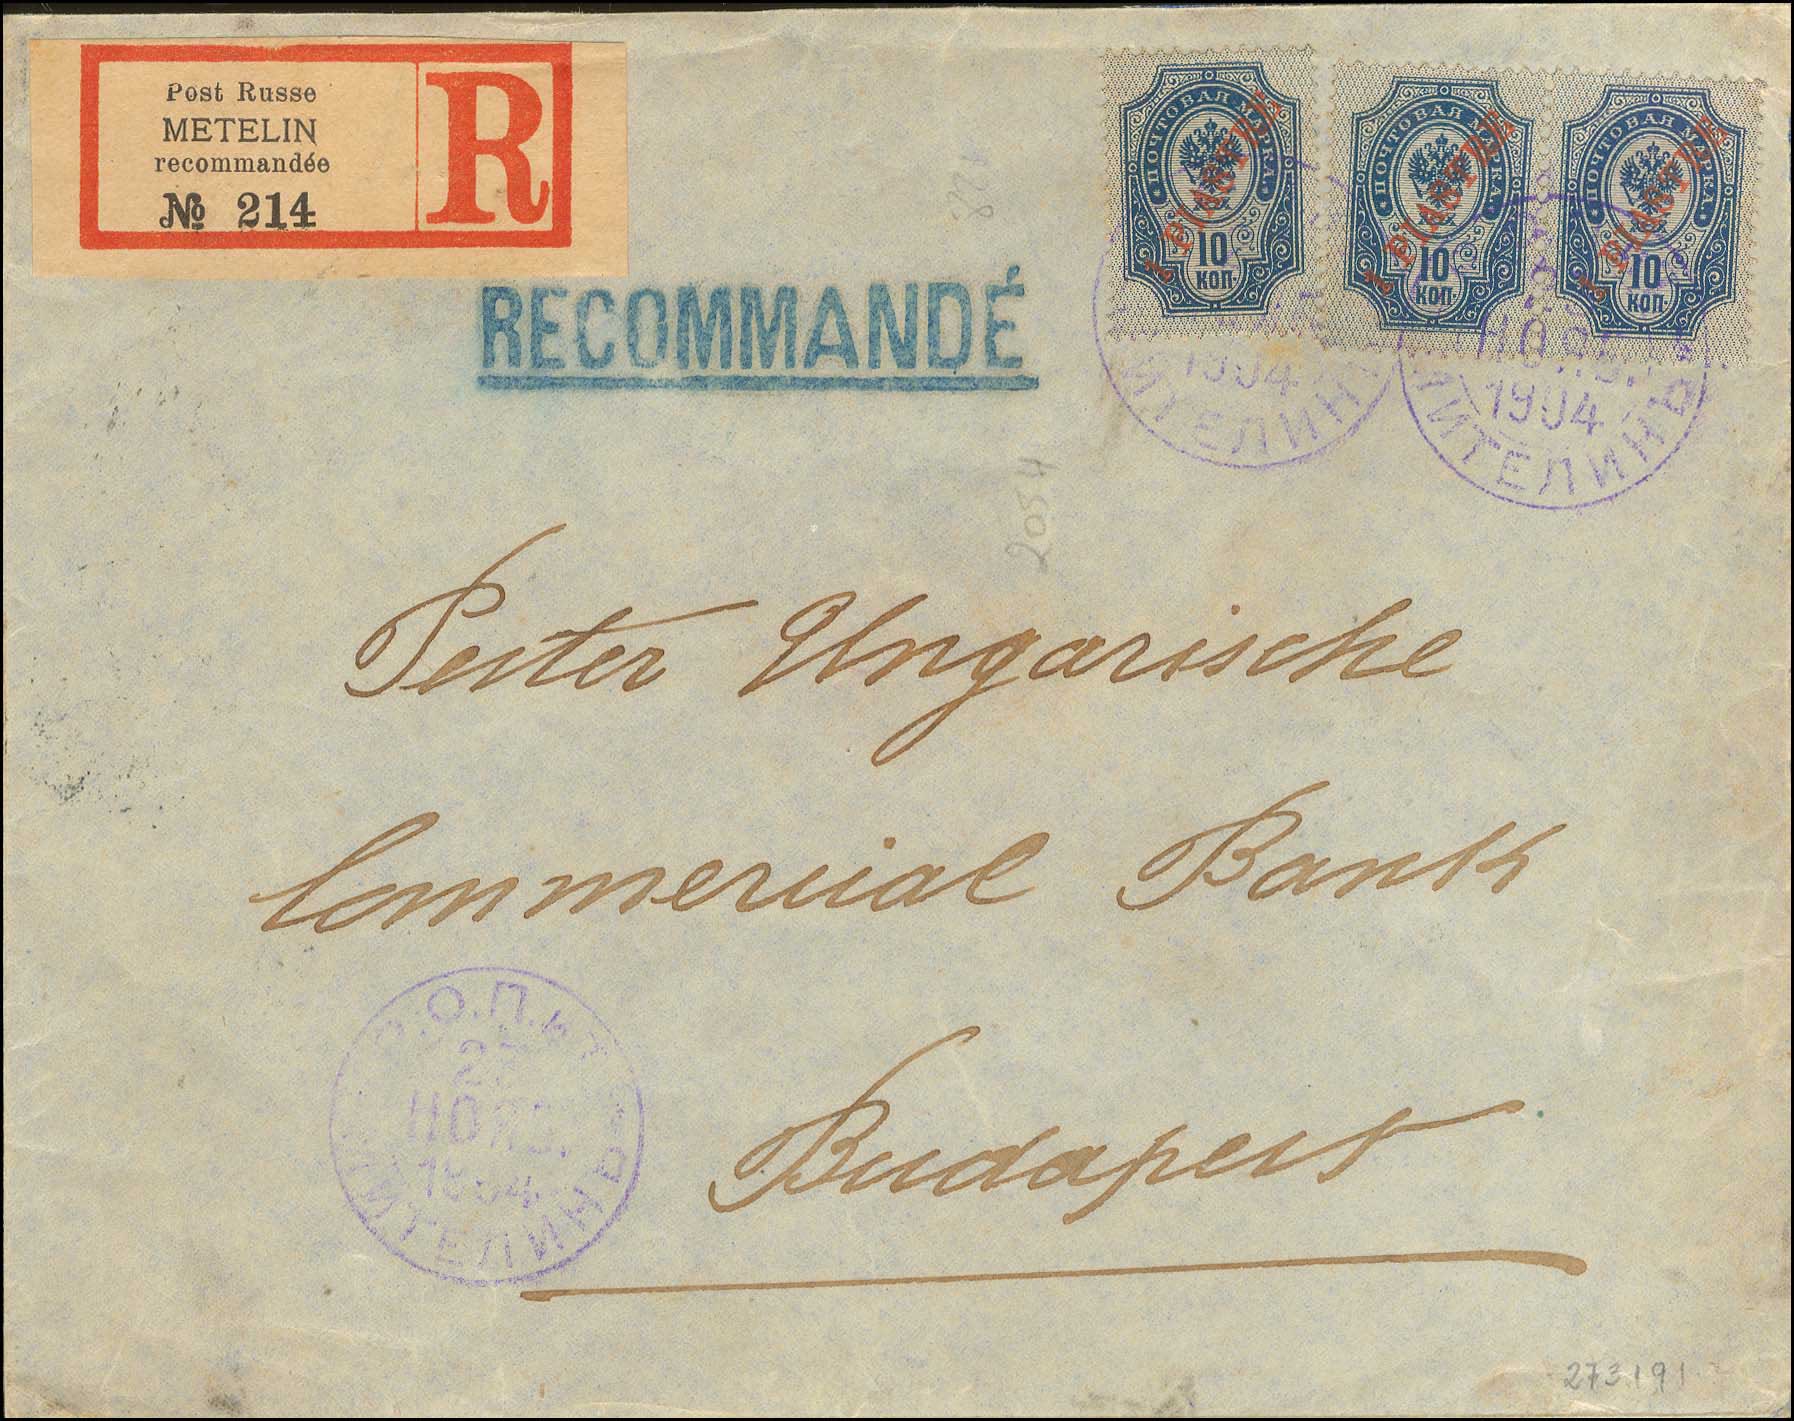 Post Russe
METELIN
recommandée
№ 214
R
ПОЧТОВАЯ МАРКА
1 PIASTRE
10
КОП.
ПОЧТОВАЯ МАРКА
1 PIASTRE
10
КОП.
ПОЧТОВАЯ МАРКА
1 PIASTRE
10
КОП.
RECOMMANDÉ
1904
МИТЕЛИНЪ
НОЯБ.
1904
МИТЕЛИНЪ
2054
Pester Ungarische
Commercial Bank
Budapest
Р.О.П.иТ.
НОЯБ.
1904
МИТЕЛИНЪ
273191